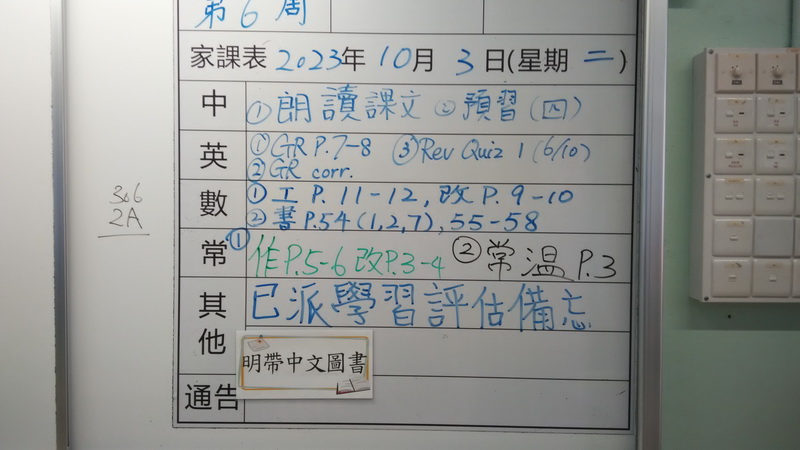 第6周
家課表 2023年10月3日(星期二)
中 ①朗讀課文 ②預習(四)
英 ①GR P.7-8 ③Rev Quiz 1 (6/10)
②GR corr.
306
2A
數 ①工 P. 11-12, 改 P. 9-10
②書 P.54 (1,2,7), 55-58
常 ①作P.5-6 改P.3-4 ②常溫 P.3
其他 已派學習評估備忘
明帶中文圖書
通告